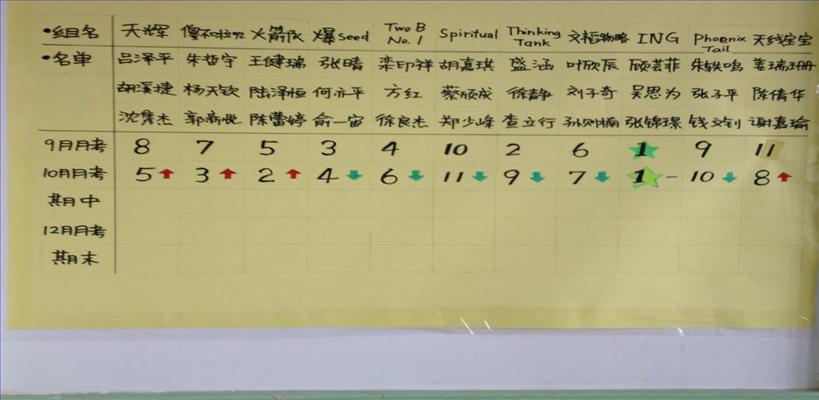 •组名 天辉 傻不拉几 火箭队 爆Seed Two B No.1 Spiritual Thinking Tank 文韬物略 ING Phoenix Tail 天线宝宝
•名单 吕泽平 朱哲宇 王健瑞 张晴 栾印祥 胡嘉琪 盛涵 叶欣辰 顾芸菲 朱轶鸣 姜瑞珊
胡溪捷 杨天钦 陆泽恒 何亦平 方红 蔡颀成 徐静 刘子奇 吴思为 张子平 陈倩华
沈隽杰 郭商悦 陈蕾婷 俞一宙 徐良杰 郑少峰 查立行 孙则楠 张锦璟 钱文钊 谢嘉瑜
9月月考 8 7 5 3 4 10 2 6 1 9 11
10月月考 5 ↑ 3 ↑ 2 ↑ 4 ↓ 6 ↓ 11 ↓ 9 ↓ 7 ↓ 1 - 10 ↓ 8 ↑
期中
12月月考
期末